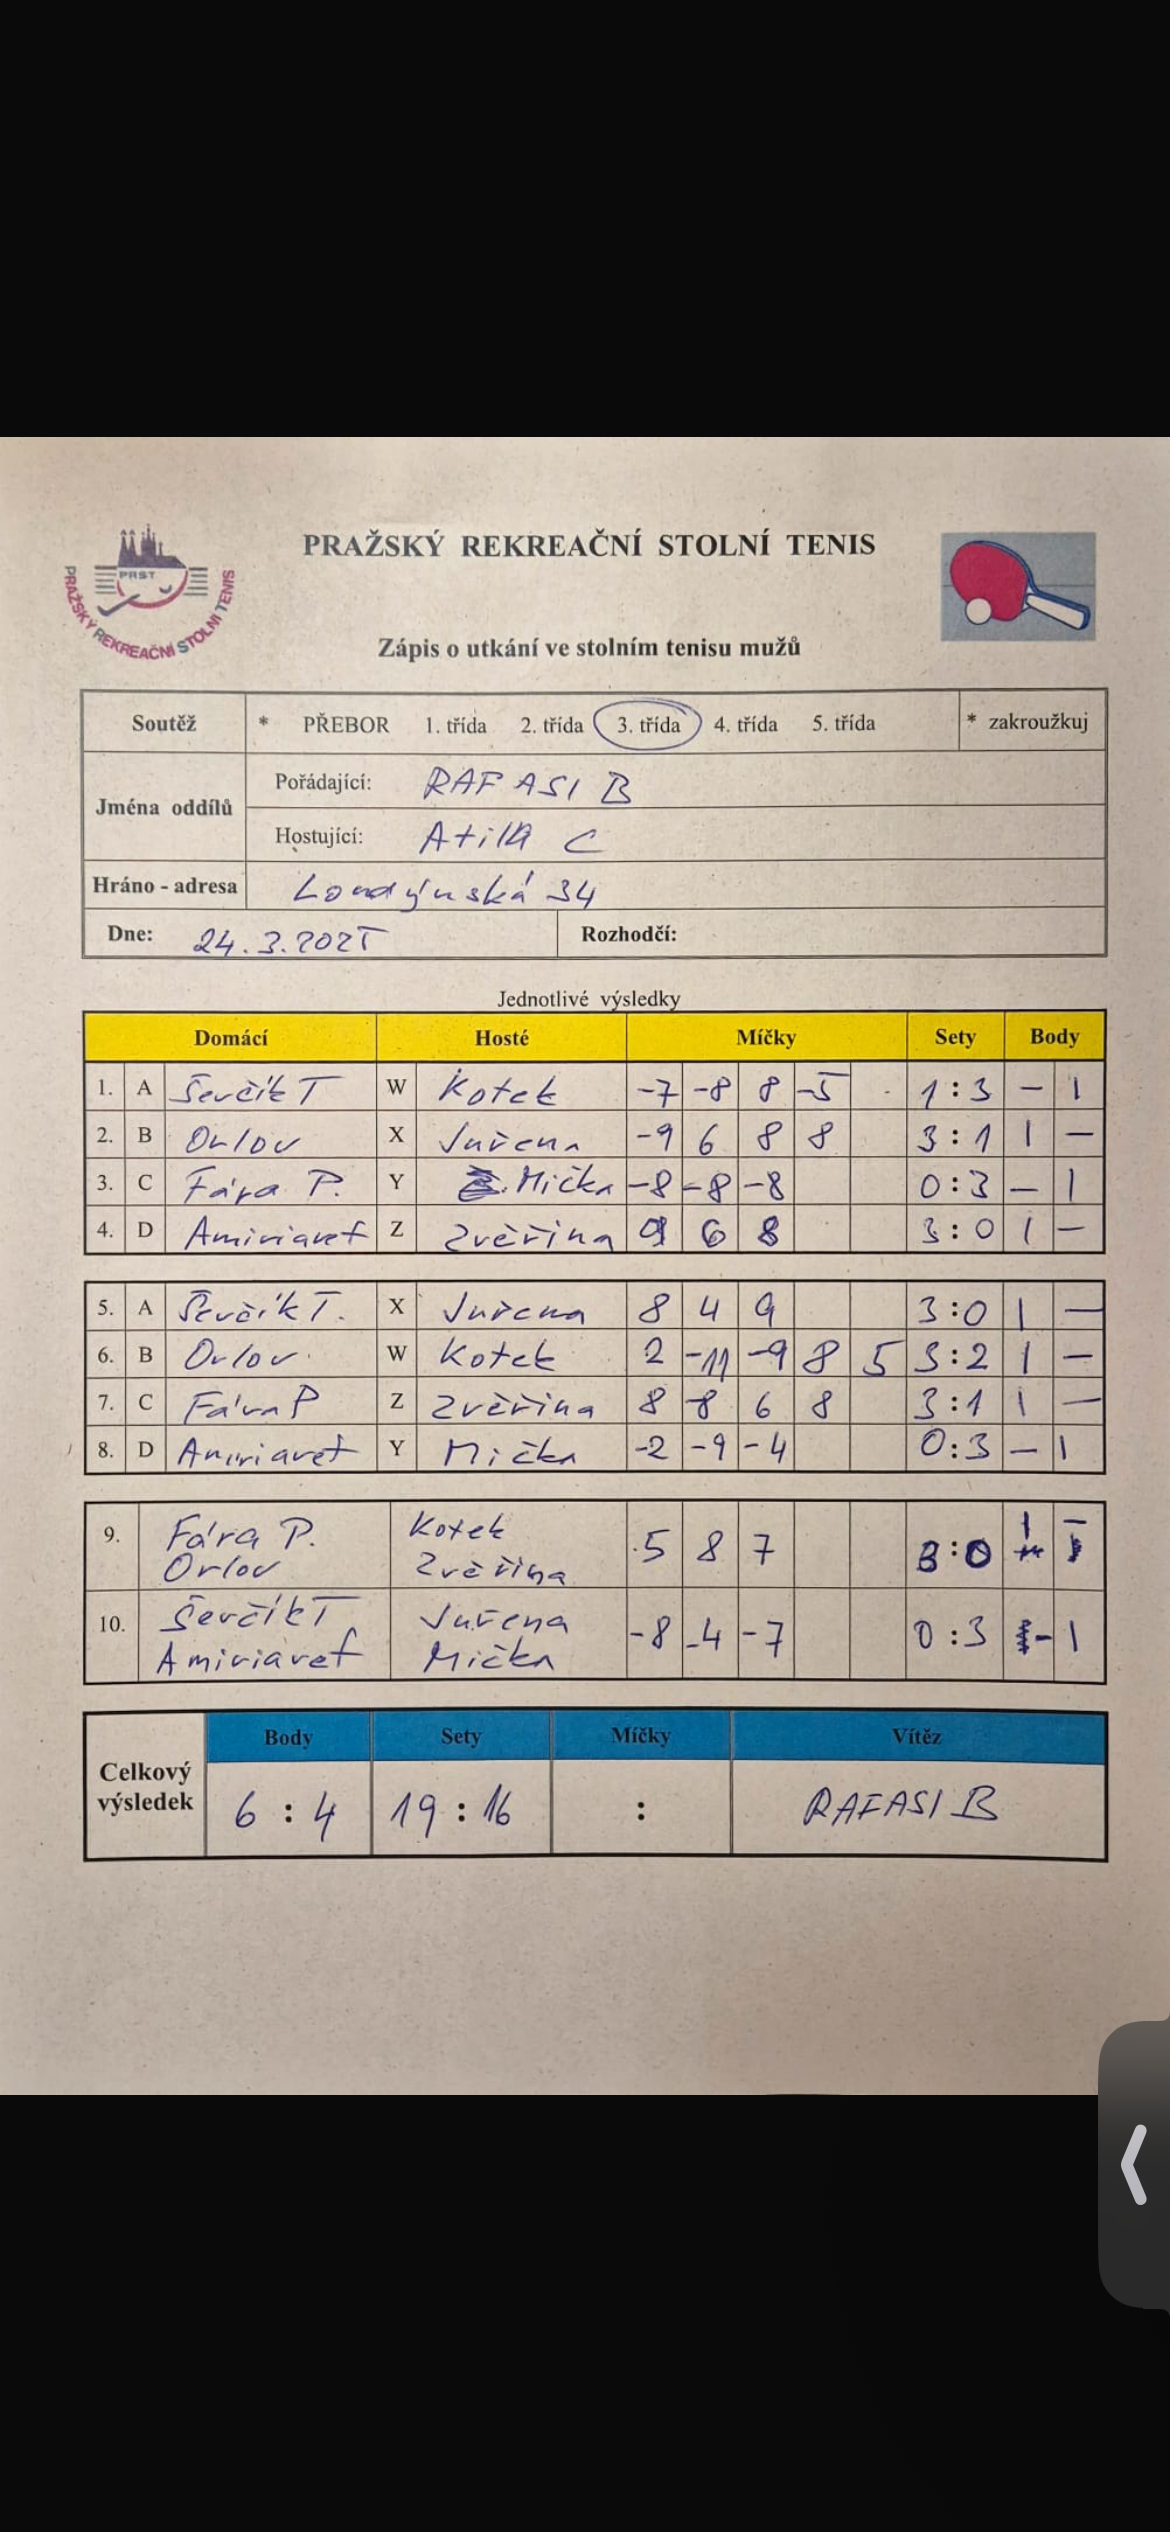 PRST
PRAŽSKÝ REKREAČNÍ STOLNÍ TENIS
PRAŽSKÝ REKREAČNÍ STOLNÍ TENIS
Zápis o utkání ve stolním tenisu mužů
Soutěž * PŘEBOR 1. třída 2. třída 3. třída 4. třída 5. třída * zakroužkuj
Jména oddílů
Pořádající: RAFASI B
Hostující: Atila C
Hráno - adresa Londýnská 34
Dne: 24.3.2025 Rozhodčí:
Jednotlivé výsledky
Domácí Hosté Míčky Sety Body
1. A Ševčík T W Kotek -7 -8 8 -5 1:3 - 1
2. B Orlov X Juřena -9 6 8 8 3:1 1 -
3. C Fára P. Y Mička -8 -8 -8 0:3 - 1
4. D Amiriavef Z Zvěřina 9 6 8 3:0 1 -
5. A Ševčík T. X Juřena 8 4 9 3:0 1 -
6. B Orlov W Kotek 2 -11 -9 8 5 3:2 1 -
7. C Fára P Z Zvěřina 8 -8 6 8 3:1 1 -
8. D Amiriavef Y Mička -2 -9 -4 0:3 - 1
9. Fára P. Kotek 5 8 7 3:0 1 -
Orlov Zvěřina
10. Ševčík T Juřena -8 -4 -7 0:3 - 1
Amiriavef Mička
Celkový výsledek
Body Sety Míčky Vítěz
6:4 19:16 : RAFASI B